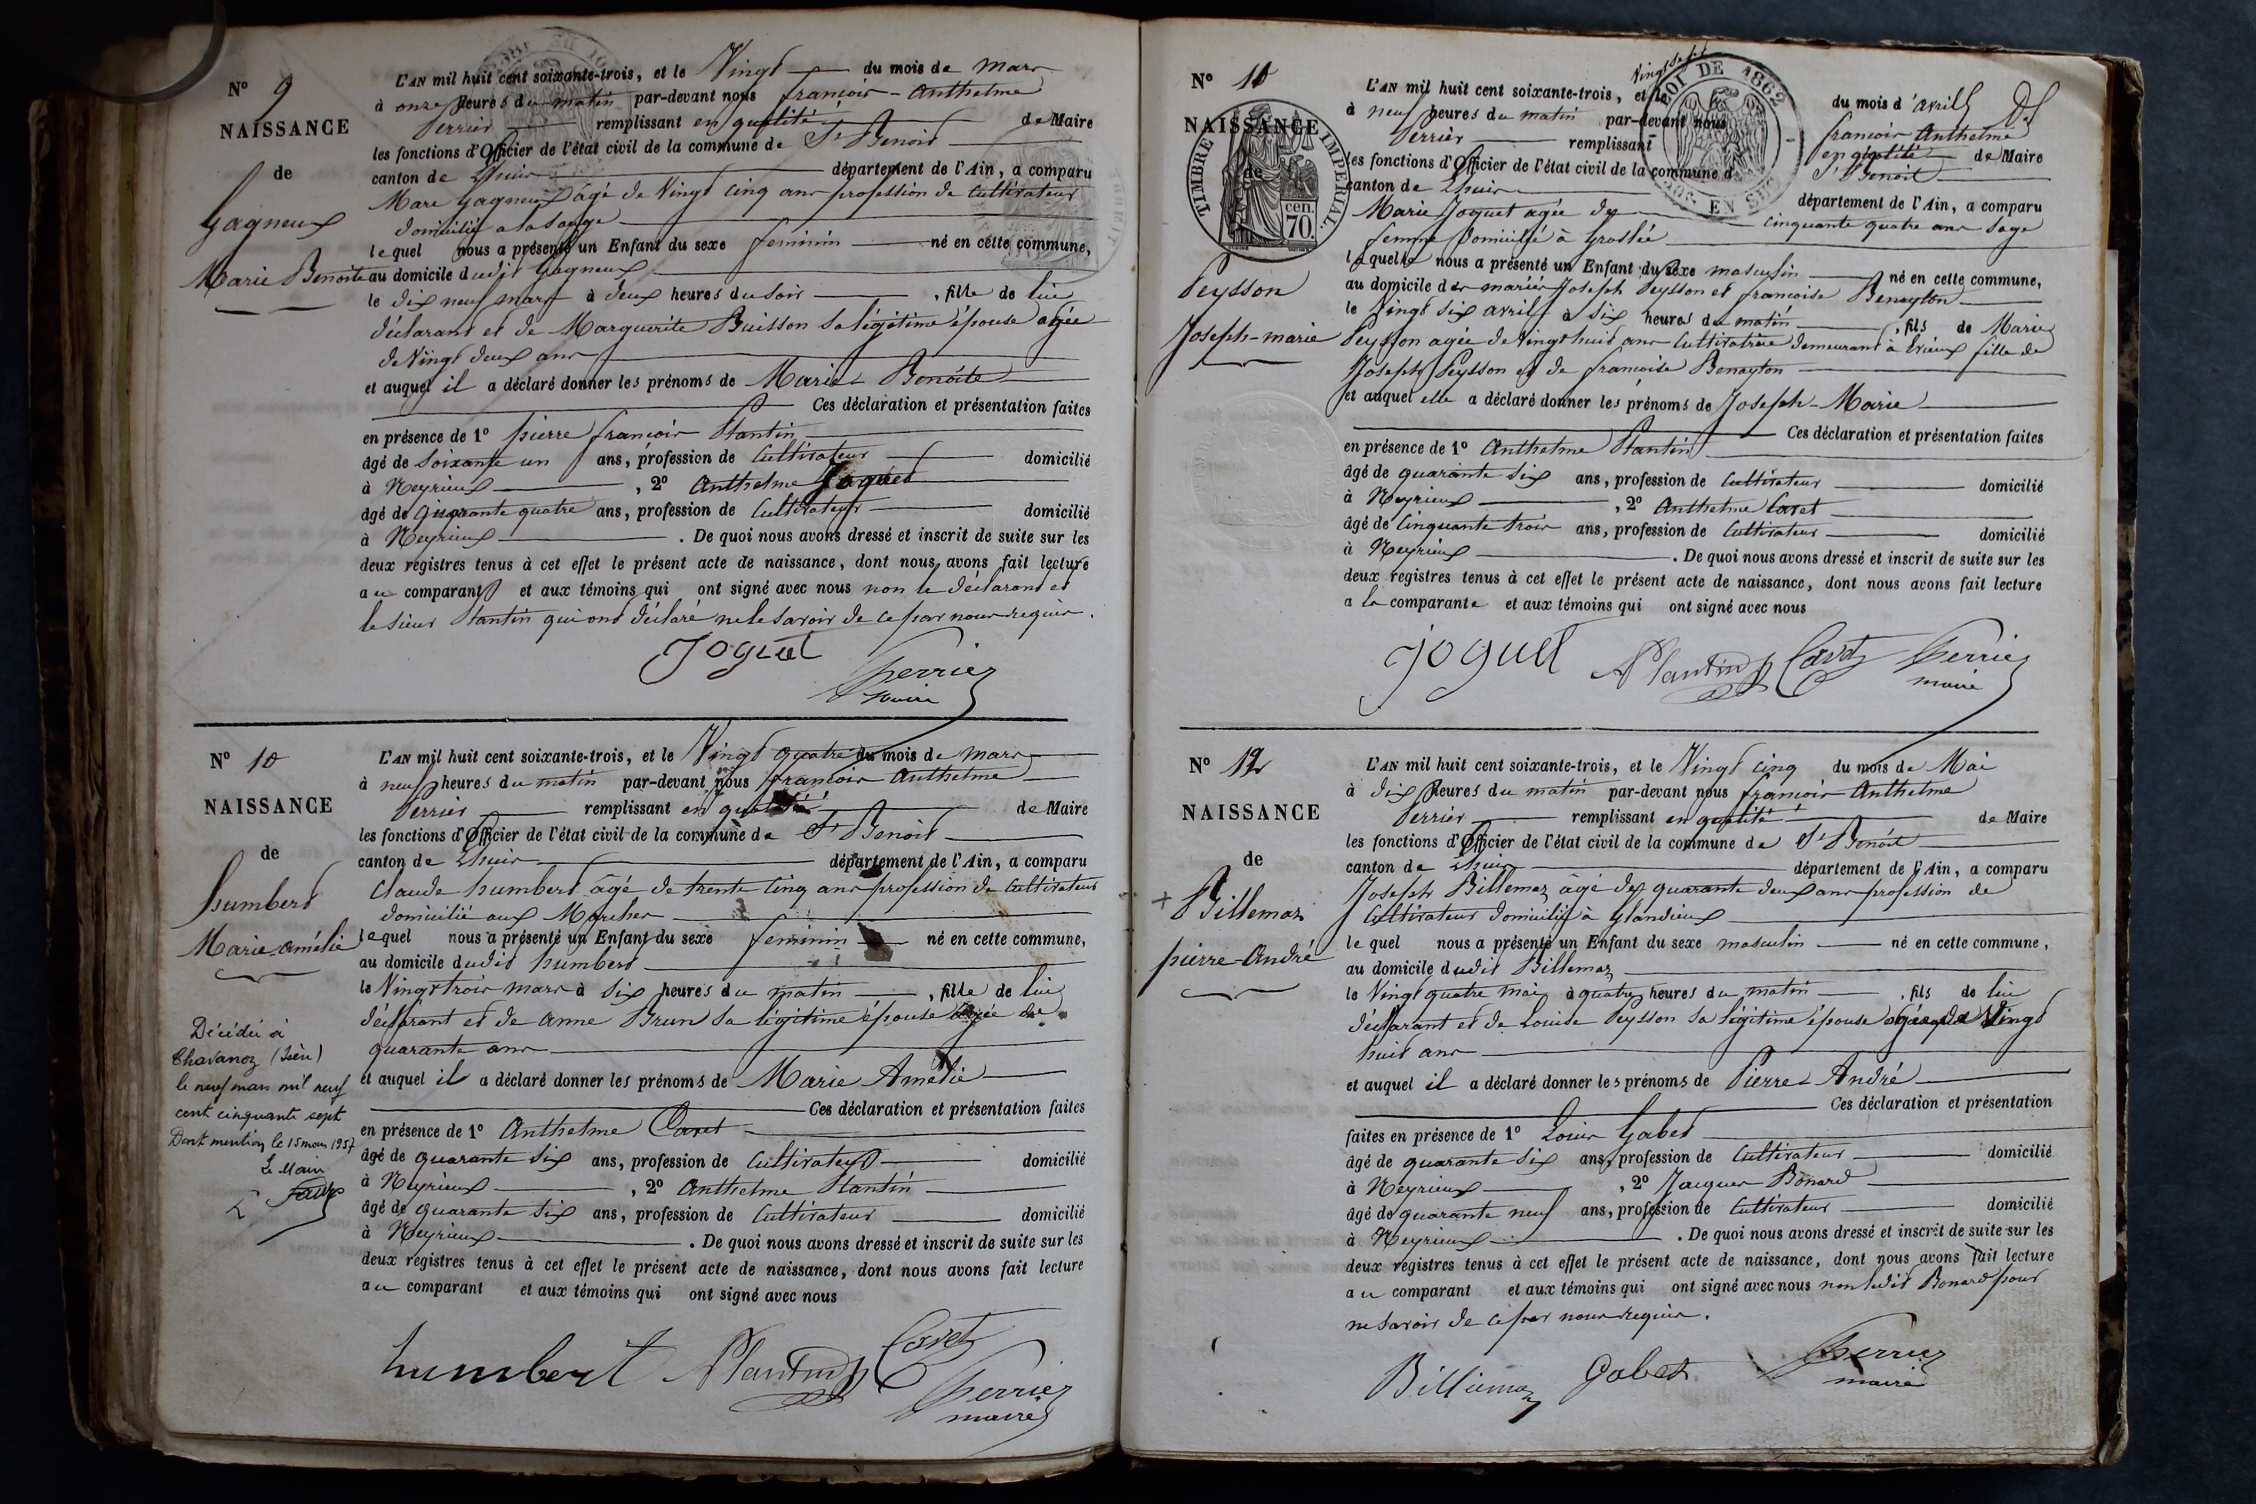 N° 9
NAISSANCE
de
Gagneux
Marie Benoite
L'AN mil huit cent soixante-trois, et le Vingt du mois de mars
à onze heures du matin par-devant nous françois-Anthelme
Perrier remplissant en qualité de Maire
les fonctions d'Officier de l'état civil de la commune de St Benoit
canton de Lhuis département de l'Ain, a comparu
Marc Gagneux âgé de Vingt cinq ans profession de Cultivateur
domicilié a la Sauge
lequel nous a présenté un Enfant du sexe feminin né en cette commune,
au domicile dudit Gagneux
le dix neuf mars à deux heures du soir , fille de lui
déclarant et de Marguerite Buisson sa légitime épouse agée
de Vingt deux ans
et auquel il a déclaré donner les prénoms de Marie Benoite
Ces déclaration et présentation faites
en présence de 1° pierre françois Plantin
âgé de soixante un ans, profession de Cultivateur domicilié
à Neyrieux , 2° Anthelme Joguet
âgé de quarante quatre ans, profession de Cultivateur domicilié
à Neyrieux . De quoi nous avons dressé et inscrit de suite sur les
deux registres tenus à cet effet le présent acte de naissance, dont nous avons fait lecture
au comparant et aux témoins qui ont signé avec nous non le déclarant et
le sieur Plantin qui ont déclaré ne le savoir de ce par nous requis.
Joguet
Perrier
maire
N° 10
NAISSANCE
de
humbert
Marie-amélie
Décédée à
Chavanoz (Isère)
le neuf mars mil neuf
cent cinquante sept
Dont mention le 15 mars 1957
Le Maire
L'AN mil huit cent soixante-trois, et le Vingt quatre du mois de mars
à neuf heures du matin par-devant nous françois Anthelme
Perrier remplissant en qualité de Maire
les fonctions d'Officier de l'état civil de la commune de St Benoit
canton de Lhuis département de l'Ain, a comparu
Claude humbert âgé de trente cinq ans profession de Cultivateur
domicilié aux Marches
lequel nous a présenté un Enfant du sexe feminin né en cette commune,
au domicile dudit humbert
le Vingt trois mars à six heures du matin , fille de lui
déclarant et de anne Brun sa légitime épouse agée de
quarante ans
et auquel il a déclaré donner les prénoms de Marie Amélie
Ces déclaration et présentation faites
en présence de 1° Anthelme Cavet
âgé de quarante six ans, profession de Cultivateur domicilié
à Neyrieux , 2° Anthelme Plantin
âgé de quarante six ans, profession de Cultivateur domicilié
à Neyrieux . De quoi nous avons dressé et inscrit de suite sur les
deux registres tenus à cet effet le présent acte de naissance, dont nous avons fait lecture
au comparant et aux témoins qui ont signé avec nous
humbert APlantin Cavet
Perrier
maire
N° 11
NAISSANCE
de
TIMBRE IMPERIAL.
70 cen.
Peysson
Joseph-marie
LOI DE 1862
EN SUS
L'AN mil huit cent soixante-trois, et le Vingt sept du mois d'avril
à neuf heures du matin par-devant nous françois Anthelme
Perrier remplissant en qualité de Maire
les fonctions d'Officier de l'état civil de la commune d St Benoit
canton de Lhuis département de l'Ain, a comparu
Marie Joguet agée de cinquante quatre ans sage
femme domiciliée à Groslée
laquelle nous a présenté un Enfant du sexe masculin né en cette commune,
au domicile des mariés Joseph Peysson et françoise Benayton
le Vingt six avril à six heures du matin , fils de Marie
Peysson agée de Vingt huit ans Cultivatrice demeurant à Evieux fille de
Joseph Peysson et de françoise Benayton
et auquel elle a déclaré donner les prénoms de Joseph-Marie
Ces déclaration et présentation faites
en présence de 1° Anthelme Plantin
âgé de quarante six ans, profession de Cultivateur domicilié
à Neyrieux , 2° Anthelme Cavet
âgé de Cinquante trois ans, profession de Cultivateur domicilié
à Neyrieux . De quoi nous avons dressé et inscrit de suite sur les
deux registres tenus à cet effet le présent acte de naissance, dont nous avons fait lecture
a la comparante et aux témoins qui ont signé avec nous
joguet APlantin Cavet Perrier
maire
N° 12
NAISSANCE
de
+ Billemaz
pierre-André
L'AN mil huit cent soixante-trois, et le Vingt cinq du mois de Mai
à dix heures du matin par-devant nous françois Anthelme
Perrier remplissant en qualité de Maire
les fonctions d'Officier de l'état civil de la commune de St Benoit
canton de Lhuis département de l'Ain, a comparu
Joseph Billemaz âgé de quarante deux ans profession de
Cultivateur domicilié à Glandieux
lequel nous a présenté un Enfant du sexe masculin né en cette commune,
au domicile dudit Billemaz
le Vingt quatre mai à quatre heures du matin , fils de lui
déclarant et de Louise Peysson sa légitime épouse agée de Vingt
huit ans
et auquel il a déclaré donner les prénoms de Pierre André
Ces déclaration et présentation
faites en présence de 1° Louis Gabet
âgé de quarante six ans, profession de Cultivateur domicilié
à Neyrieux , 2° Jacques Bonard
âgé de quarante neuf ans, profession de Cultivateur domicilié
à Neyrieux . De quoi nous avons dressé et inscrit de suite sur les
deux registres tenus à cet effet le présent acte de naissance, dont nous avons fait lecture
au comparant et aux témoins qui ont signé avec nous non ledit Bonard pour
ne savoir de ce par nous requis.
Billemaz Gabet Perrier
maire